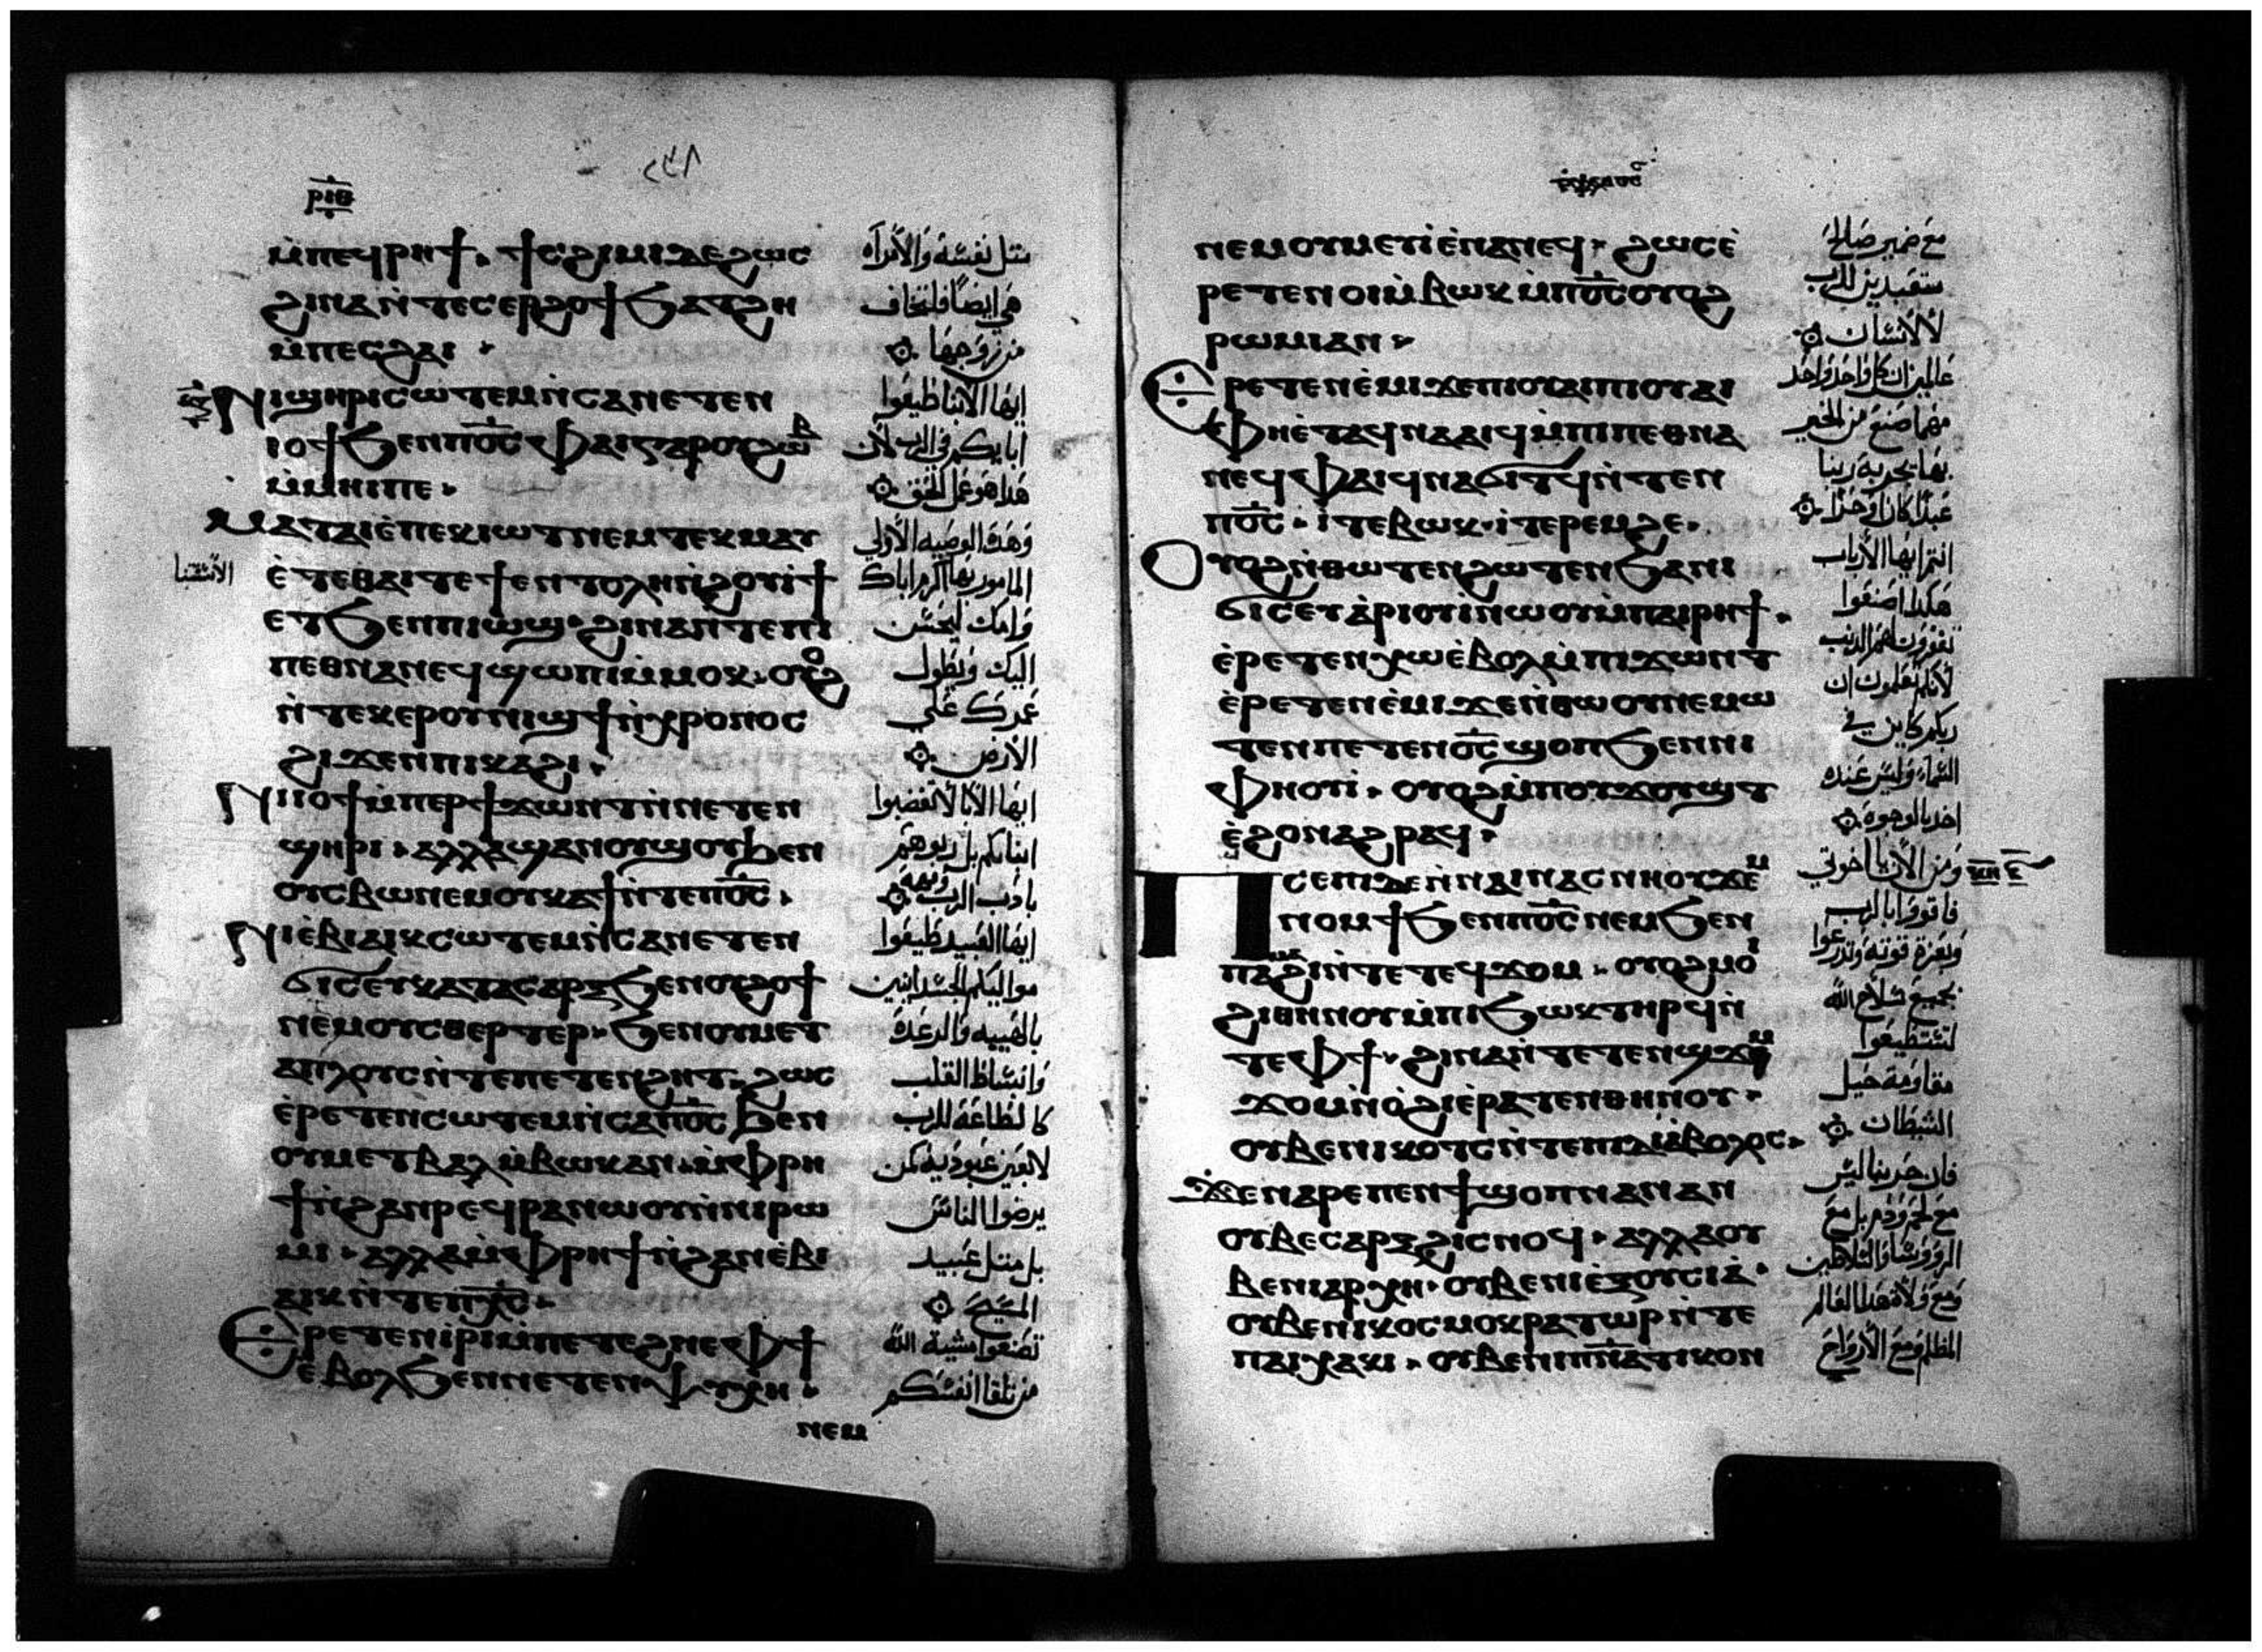 ⲣⲓⲑ
ⲙ̀ⲡⲉϥⲣⲏϯ · ϯⲥϩⲓⲙⲓⲇⲉϩⲱⲥ
ϩⲓⲛⲁⲛ̀ⲧⲉⲥⲉⲣϩⲟϯϧⲁⲧϩⲏ
ⲙ̀ⲡⲉⲥϩⲁⲓ ·
ⲛⲓϣⲏⲣⲓⲥⲱⲧⲉⲙⲛ̀ⲥⲁⲛⲉⲧⲉⲛ
ⲓⲟϯϧⲉⲛⲡⲟ̅ⲥ̅ⲫⲁⲓⲅⲁⲣⲟⲩϩⲱⲃ
ⲙ̀ⲙⲏⲓⲡⲉ ·
ⲙⲁⲧⲁⲓⲉ̀ⲡⲉⲕⲓⲱⲧⲛⲉⲙⲧⲉⲕⲙⲁⲩ
ⲉ̀ⲧⲉⲑⲁⲓⲧⲉϯⲉⲛⲧⲟⲗⲏⲛ̀ϩⲟⲩⲓ̀ϯ
ⲉⲧϧⲉⲛⲡⲓⲱϣ · ϩⲓⲛⲁⲛ̀ⲧⲉⲡⲓ
ⲡⲉⲑⲛⲁⲛⲉϥϣⲱⲡⲓⲙ̀ⲙⲟⲕ · ⲟⲩⲟϩ
ⲛ̀ⲧⲉⲕⲉⲣⲟⲩⲛⲓϣϯⲛ̀ⲭⲣⲟⲛⲟⲥ
ϩⲓϫⲉⲛⲡⲓⲕⲁϩⲓ ·
ⲛⲓⲟϯⲙ̀ⲡⲉⲣϯϫⲱⲛⲧⲛ̀ⲛⲉⲧⲉⲛ
ϣⲏⲣⲓ · ⲁⲗⲗⲁϣⲁⲛⲟⲩϣⲟⲩϧⲉⲛ
ⲟⲩⲥⲃⲱⲛⲉⲙⲟⲩⲕⲁϯⲛ̀ⲧⲉⲡⲟ̅ⲥ̅ ·
ⲛⲓⲉ̀ⲃⲓⲁⲓⲕⲥⲱⲧⲉⲙⲛ̀ⲥⲁⲛⲉⲧⲉⲛ
ϭⲓⲥⲉⲩⲕⲁⲧⲁⲥⲁⲣⲝϧⲉⲛⲟⲩϩⲟϯ
ⲛⲉⲙⲟⲩⲥⲑⲉⲣⲧⲉⲣ · ϧⲉⲛⲟⲩⲙⲉⲧ
ⲁⲡⲗⲟⲩⲥⲛ̀ⲧⲉⲡⲉⲧⲉⲛϩⲏⲧ · ϩⲱⲥ
ⲉ̀ⲣⲉⲧⲉⲛⲥⲱⲧⲉⲙⲛ̀ⲥⲁⲡⲟ̅ⲥ̅ϧⲉⲛ
ⲟⲩⲙⲉⲧⲃⲁⲗⲙ̀ⲃⲱⲕⲁⲛ · ⲙ̀ⲫⲣⲏ
ϯⲛ̀ϩⲁⲛⲣⲉϥⲣⲁⲛⲱⲟⲩⲛ̀ⲛⲓⲣⲱ
ⲙⲓ · ⲁⲗⲗⲁⲙ̀ⲫⲣⲏϯⲛ̀ϩⲁⲛⲉ̀ⲃⲓ
ⲁⲓⲕⲛ̀ⲧⲉⲡⲭ̅ⲥ̅ ·
ⲉⲣⲉⲧⲉⲛⲓ̀ⲣⲓⲙ̀ⲡⲉⲧⲉϩⲛⲉⲫϯ
ⲉⲃⲟⲗϧⲉⲛⲛⲉⲧⲉⲛⲯⲩⲭⲏ ·
ⲛⲉⲙ
مثل نفسه والامراه
هي ايضا فلتخاف
من زوجها
ايها الابنا طيعوا
اباكم في الرب لان
هذا هو عمل الحق
وهذه الوصيه الاولي
المامور بها اكرم اباك
وامك ليحسن
اليك ويطول
عمرك علي
الارض
ايها الابا لا تغضبوا
ابناكم بل ربوهم
بادب الرب
ايها العبيد طيعوا
مواليكم الجسدانيين
بالهيبه والرعدة
وانبساط القلب
كالطاعة للرب
لا لعين عبودية كمن
يرضوا الناس
بل مثل عبيد
المسيح
تصنعوا مشية الله
من تلقا انفسكم
ⲛⲉⲙⲟⲩⲙⲉⲩⲓ̀ⲉ̀ⲛⲁⲛⲉϥ · ϩⲱⲥⲉ̀
ⲣⲉⲧⲉⲛⲟⲓⲙ̀ⲃⲱⲕⲙ̀ⲡⲟ̅ⲥ̅ⲟⲩⲟϩ
ⲣⲱⲙⲓⲁⲛ ·
ⲉⲣⲉⲧⲉⲛⲉ̀ⲙⲓϫⲉⲡⲓⲟⲩⲁⲓⲡⲓⲟⲩⲁⲓ
ⲫⲏⲉ̀ⲧⲁϥⲛⲁⲁⲓϥⲙ̀ⲡⲓⲡⲉⲑⲛⲁ
ⲛⲉϥⲫⲁⲓϥⲛⲁϭⲓⲧϥⲛ̀ⲧⲉⲛ
ⲡⲟ̅ⲥ̅ · ⲓ̀ⲧⲉⲃⲱⲕ · ⲓ̀ⲧⲉⲣⲉⲙϩⲉ ·
ⲟⲩⲟϩⲛ̀ⲑⲱⲧⲉⲛϩⲱⲧⲉⲛϧⲁⲛⲓ
ϭⲓⲥⲉⲩⲁ̀ⲣⲓⲟⲩⲓ̀ⲛⲱⲟⲩⲙ̀ⲡⲁⲓⲣⲏϯ ·
ⲉ̀ⲣⲉⲧⲉⲛⲭⲱⲉ̀ⲃⲟⲗⲙ̀ⲡⲓϫⲱⲛⲧ
ⲉ̀ⲣⲉⲧⲉⲛⲉ̀ⲙⲓϫⲉⲛ̀ⲑⲱⲟⲩⲛⲉⲙⲱ
ⲧⲉⲛⲡⲉⲧⲉⲛⲟ̅ⲥ̅ϣⲟⲡϧⲉⲛⲛⲓ
ⲫⲏⲟⲩⲓ̀ · ⲟⲩⲟϩⲙ̀ⲡⲟⲩϫⲟⲩϣⲧ
ⲉ̀ϩⲟⲛⲁϩⲣⲁϥ ·
ⲡⲥⲉⲡⲓⲇⲉⲛ̀ⲛⲁⲓⲛⲁⲥⲛⲏⲟⲩϫⲉⲙ
ⲛⲟⲙϯϧⲉⲛⲡⲟ̅ⲥ̅ⲛⲉⲙϧⲉⲛ
ⲡⲁⲙⲁϩⲓⲛ̀ⲧⲉⲧⲉϥϫⲟⲙ · ⲟⲩⲟϩⲙⲟⲓ
ϩⲓⲑⲏⲛⲟⲩⲙ̀ⲡⲓϧⲱⲕⲧⲏⲣϥⲛ̀
ⲧⲉⲫϯ · ϩⲓⲛⲁⲛ̀ⲧⲉⲧⲉⲛϣϫⲉⲙ
ϫⲟⲙⲛ̀ⲟ̀ϩⲓⲉ̀ⲣⲁⲧⲉⲛⲑⲏⲛⲟⲩ ·
ⲟⲩⲃⲉⲛⲓⲕⲟⲧⲥⲛ̀ⲧⲉⲡⲓⲇⲓⲁ̀ⲃⲟⲗⲟⲥ ·
ϫⲉⲛⲁⲣⲉⲡⲉⲛϯϣⲟⲡⲛⲁⲛⲁⲛ
ⲟⲩⲃⲉⲥⲁⲣⲝϩⲓⲥⲛⲟϥ · ⲁⲗⲗⲁⲟⲩ
ⲃⲉⲛⲓⲁⲣⲭⲏ · ⲟⲩⲃⲉⲛⲓⲉ̀ⲝⲟⲩⲥⲓⲁ̀ ·
ⲟⲩⲃⲉⲛⲓⲕⲟⲥⲙⲟⲕⲣⲁⲧⲱⲣⲛ̀ⲧⲉ
ⲡⲁⲓⲭⲁⲕⲓ · ⲟⲩⲃⲉⲛⲓⲡ̅ⲛ̅ⲁⲧⲓⲕⲟⲛ
مع ضمير صالح
متعبدين للرب
لا لانسان
عالمين ان كل واحد واحد
مهما صنع من الخير
بها يجزيه ربنا
عبدا كان او حرا
انتم ايها الارباب
هكذا اصنعوا
تغفرون لهم الذنب
لانكم تعلمون ان
ربكم كاين في
السماء وليس عنده
اخذ بالوجوه
ومن الان يا اخوتي
فاقووا بالرب
وبعزة قوته وتدرعوا
بجميع سلاح الله
لتستطيعوا
مقاومة حيل
الشيطان
فان حربنا ليس
مع لحم ودم بل مع
الرووسا والسلاطين
ومع ولاة هذا العالم
المظلم ومع الارواح